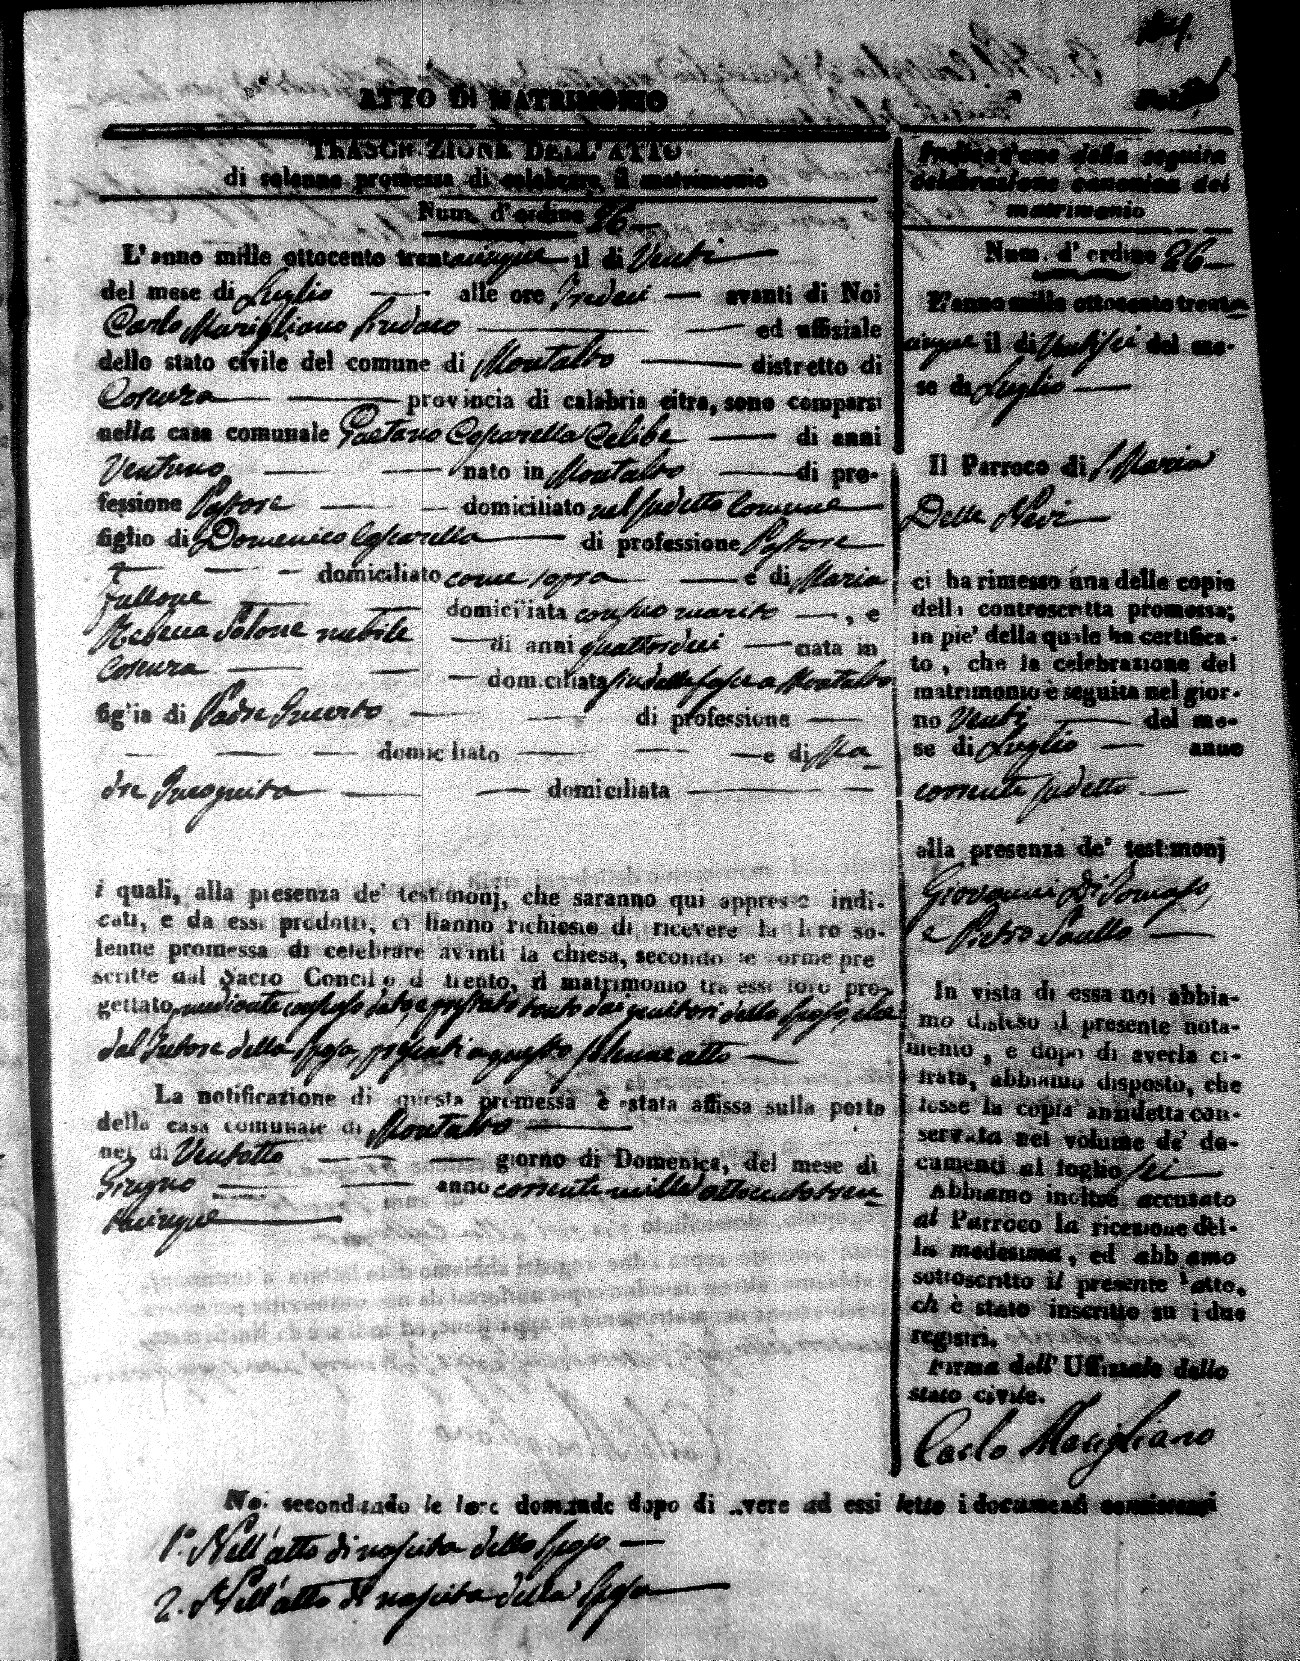 ATTO DI MATRIMONIO
TRASCRIZIONE DELL'ATTO
di solenne promessa di celebrare il matrimonio
Num. d'ordine 26
L'anno mille ottocento trentacinque il di Venti
del mese di Luglio alle ore Tredeci avanti di Noi
Carlo Marigliano Sindaco ed uffiziale
dello stato civile del comune di Montalto distretto di
Cosenza provincia di calabria citra, sono comparsi
nella casa comunale Gaetano Casparella Celibe di anni
Ventuno nato in Montalto di pro-
fessione Pastore domiciliato nel sudetto Comune
figlio di Domenico Casparella di professione Pastore
domiciliato come sopra e di Maria
Fullone domiciliata con suo marito, e
Rebecca Silone nubile di anni quattordeci nata in
Cosenza domiciliata
figlia di Padre Incerto di professione
domiciliato e di Ma
dre Incognita domiciliata
i quali, alla presenza de' testimonj, che saranno qui appresso indi-
cati, e da essi prodotti, ci hanno richiesto di ricevere la loro so-
lenne promessa di celebrare avanti la chiesa, secondo le forme pre
scritte dal Sacro Concilio di trento, il matrimonio tra essi loro pro-
gettato, mediante consenso dato, e prestato tanto dai genitori dello Sposo, che
dal Tutore della sposa, presenti a questo solenne atto
La notificazione di questa promessa è stata affissa sulla porta
della casa comunale di Montalto
nel di Ventotto giorno di Domenica, del mese di
Giugno anno corrente mille ottocento tren
tacinque
Noi secondando le loro domande dopo di avere ad essi letto i documenti consistenti
1.° Nell'atto di nascita dello sposo
2.° Nell'atto di nascita della Sposa
Indicazione della seguita
celebrazione canonica del
matrimonio
Num. d'ordine 26
L'anno mille ottocento trenta
cinque il di Ventisei del me-
se di Luglio
Il Parroco di S. Maria
Della Nevi
ci ha rimesso una delle copie
della controscritta promessa;
in pie' della quale ha certifica-
to, che la celebrazione del
matrimonio è seguita nel gior-
no Venti del me-
se di Luglio anno
corrente sudetto
alla presenza de' testimonj
Giovanni Di Tomaso,
e Pietro Saullo
In vista di essa noi abbia-
mo disteso il presente nota-
mento, e dopo di averla ci-
frata, abbiamo disposto, che
fosse la copia anzidetta con-
servata nel volume de' do-
cumenti al foglio sei
Abbiamo inoltre accusato
al Parroco la ricezione del-
la medesima, ed abbiamo
sottoscritto il presente atto,
ch è stato inscritto su i due
registri.
Firma dell'Uffiziale dello
stato civile.
Carlo Marigliano